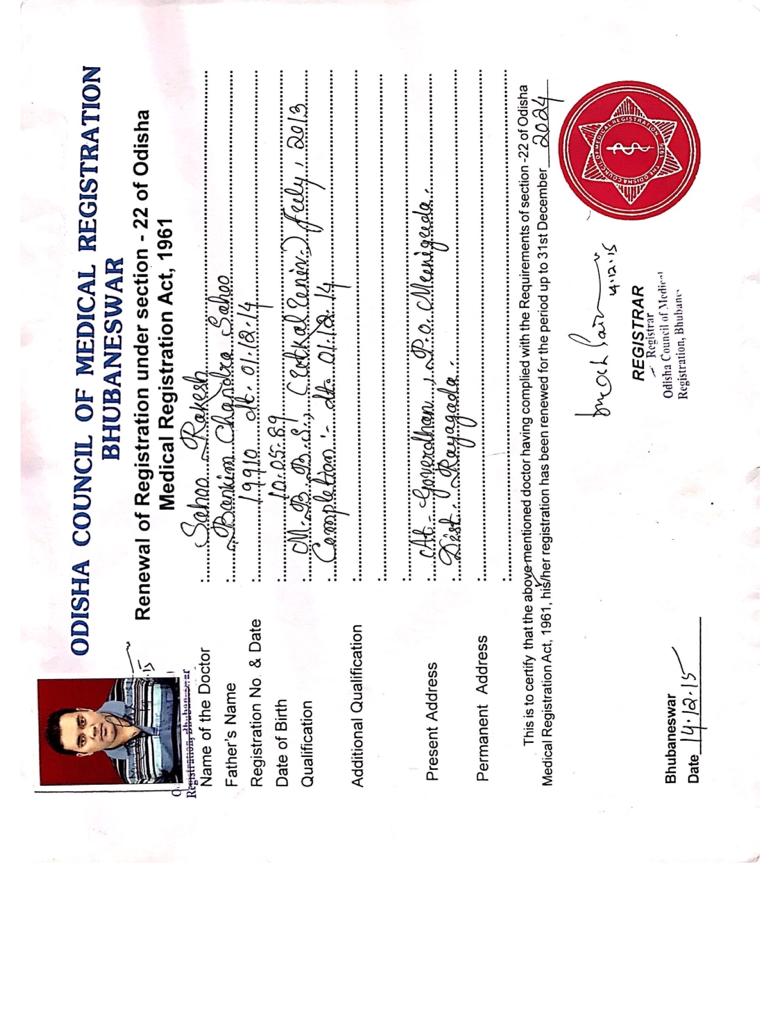 ODISHA COUNCIL OF MEDICAL REGISTRATION
BHUBANESWAR
Renewal of Registration under section - 22 of Odisha
Medical Registration Act, 1961
Registration, Bhubaneswar
Name of the Doctor : Sahoo Rakesh
Father's Name : Bankim Chandra Sahoo
Registration No. & Date : 19910 dt. 01.12.14
Date of Birth : 10.05.89
Qualification : M.B.B.S., (Utkal Univ.) July, 2013
Completion :- dt. 01.12.14
Additional Qualification :
Present Address : At- Goverdhan, P.O. Muniguda.
Dist. Rayagada.
Permanent Address :
This is to certify that the above mentioned doctor having complied with the Requirements of section -22 of Odisha
Medical Registration Act, 1961, his/her registration has been renewed for the period up to 31st December 2024
THE ODISHA COUNCIL OF MEDICAL REGISTRATION
4.12.15
REGISTRAR
Registrar
Odisha Council of Medical
Registration, Bhubans
Bhubaneswar
Date 14.12.15